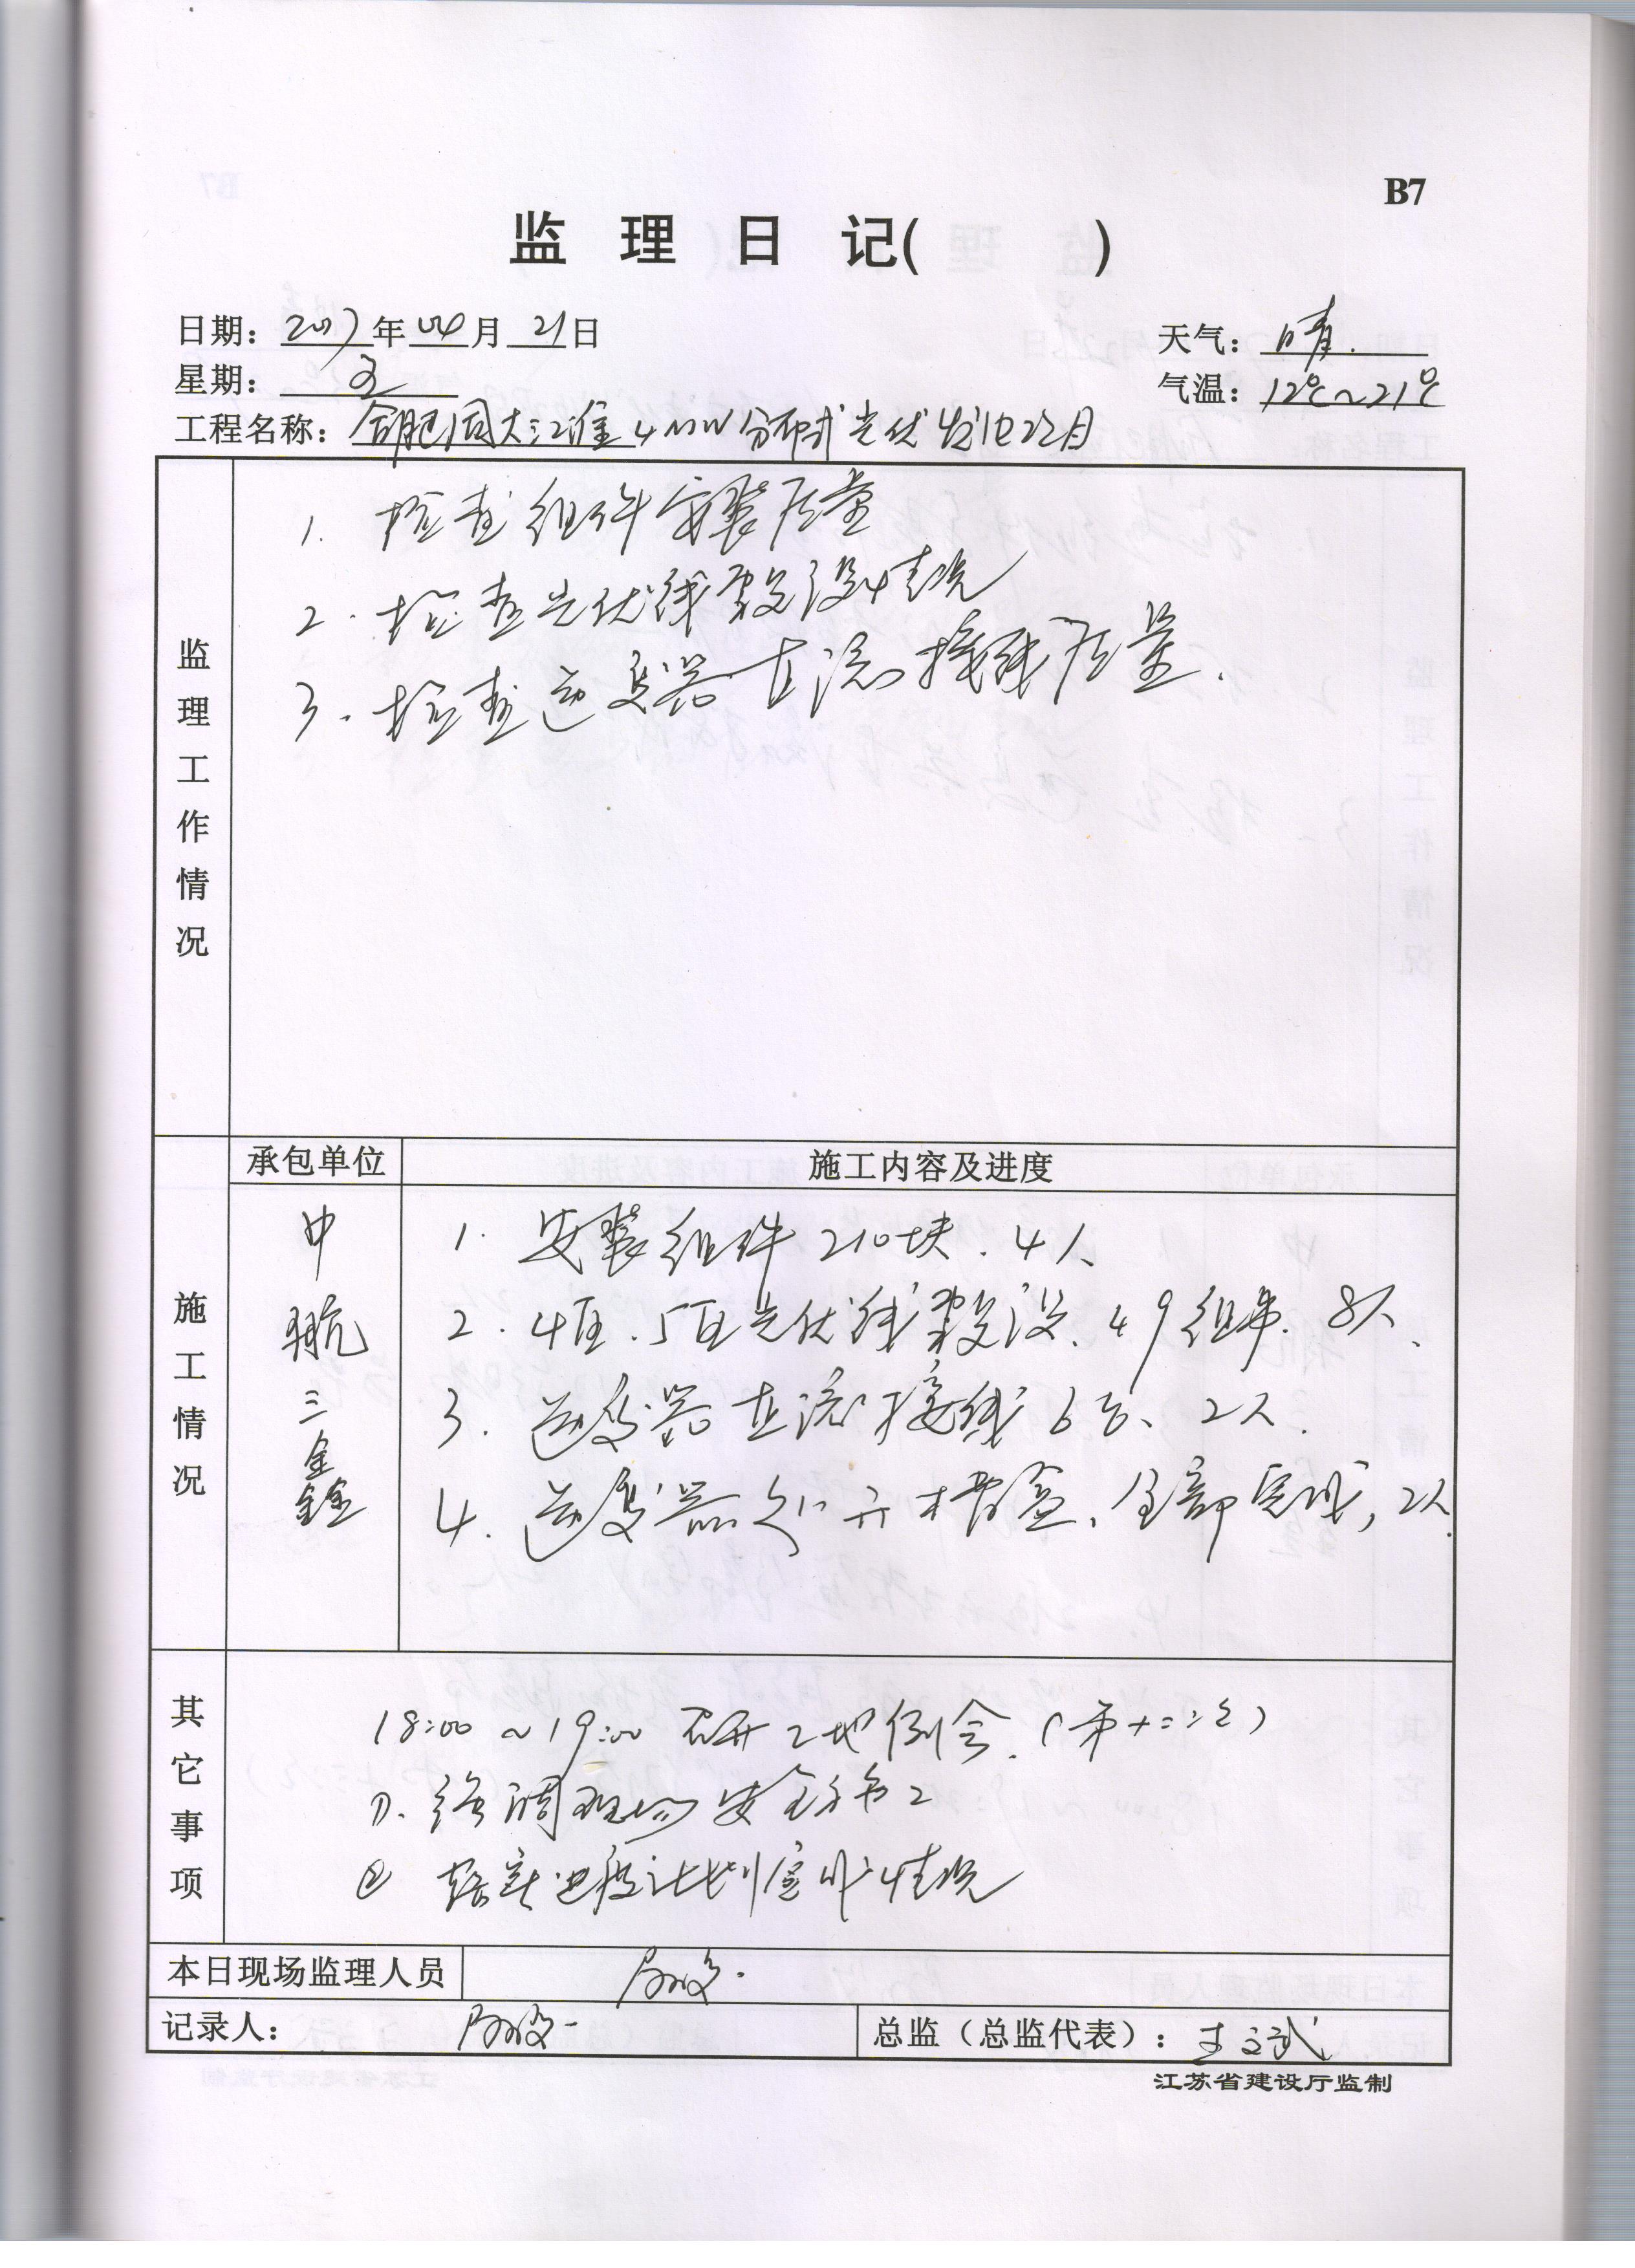 B7
监 理 日 记( )
日期: 2017 年 04 月 21 日
天气: 晴.
星期: 五
气温: 12℃~21℃
工程名称: 合肥国大江淮4MW分布式光伏发电项目
监理工作情况
1. 检查组件安装质量
2. 检查光伏线敷设情况
3. 检查逆变器直流接线质量.
承包单位
施工内容及进度
施工情况
中航三鑫
1. 安装组件210块. 4人
2. 4区.5区光伏线敷设. 49组串. 8人.
3. 逆变器直流接线6台、2人.
4. 逆变器 全部完成, 2人.
其它事项
18:00~19:00 召开工地例会.(第十二次)
①. 强调现场安全施工
② 进度计划 情况
本日现场监理人员
记录人:
总监(总监代表): 王文武
江苏省建设厅监制